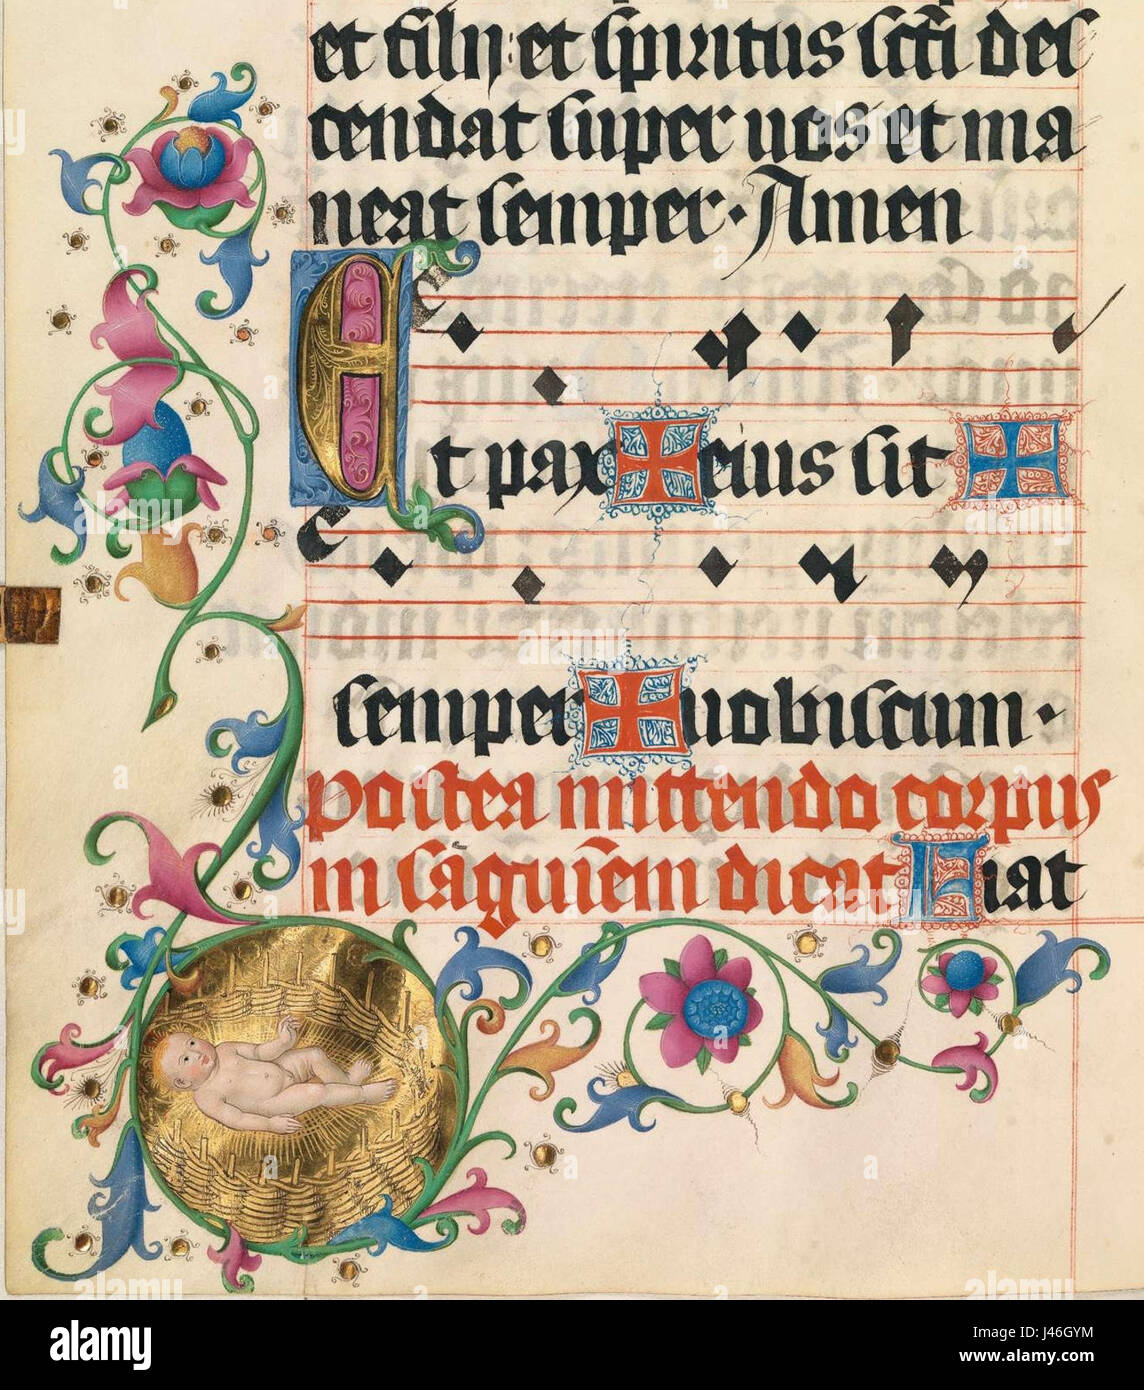 et filij: et spiritus scti des
cendat super uos et ma
neat semper. Amen
Et pax + eius sit +
semper + uobiscum.
Postea mittendo corpus
in saguinem dicat Fiat
alamy
Image ID: J46GYM
www.alamy.com